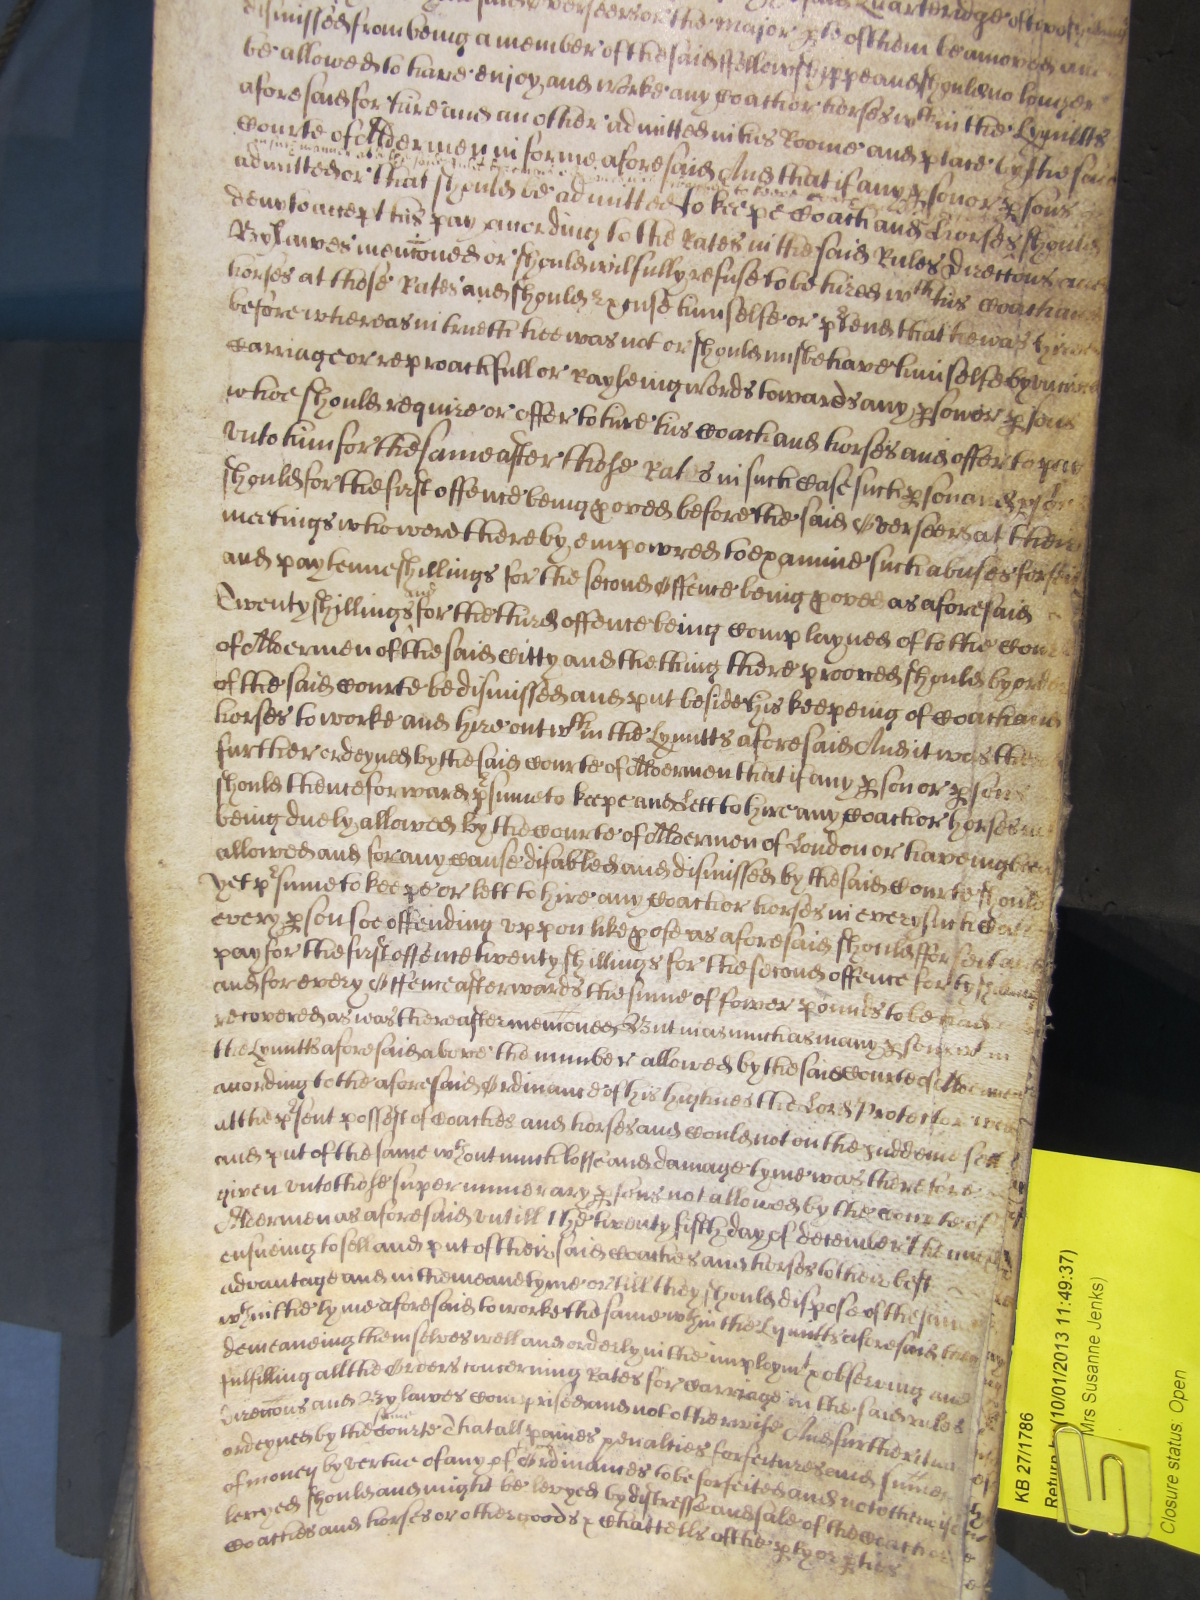 said Overseers or the major pte of them be amoved and
dismissed from being a member of the said ffellowshippe and should no longer
be allowed to have enjoy and worke any Coach or horses wth in the Lymitts
aforesaid for hire and another admitted in his Roome and place by the said
Courte of Aldermen in forme aforesaid And that if any pson or psons
admitted or that should be admitted to keepe Coach and Horses should
deny to accept his pay according to the Rates in the said Rules Direccons and
Bylawes mencioned or should wilfully refuse to be hired wth his Coach and
horses at those Rates and should excuse himselfe or ptend that he was hired
before whereas in trueth hee was not or should misbehave himselfe by uncivill
Carriage or reproachfull or Rayleing words towards any pson or psons
whoe should require or offer to hire his Coach and horses and offer to pay
unto him for the same after those Rates in such case such pson and psons
should for the first offence being proved before the said Overseers at their
meetings who were thereby empowred to examine such abuses forfeit
and pay tenne shillings for the second Offence being proved as aforesaid
Twenty shillings and for the third offence being Complayned of to the Courte
of Aldermen of the said Citty and the thing there prooved should by order
of the said Courte be dismissed and put beside his keepeing of Coach and
horses to worke and hire out wth in the Lymitts aforesaid And it was the
further ordeyned by the said Courte of Aldermen that if any pson or psons
should thenceforward psume to keepe and Lett to hire any Coach or horses not
being duely allowed by the Courte of Aldermen of London or haveing been
allowed and for any Cause disabled and dismissed by the said Courte should
yet psume to keepe or lett to hire any Coach or horses in every such Case
every pson soe offending uppon like proofe as aforesaid should fforfeit and
pay for the first offence twenty shillings for the second offence forty shillings
and for every Offence afterwards the summe of fower pounds to be
recovered as was thereafter mencioned But in asmuch as many psons in
the Lymitts aforesaid above the number allowed by the said Courte of Aldermen
according to the aforesaid Ordinance of his highnes the Lord Protector were
att the psent possest of Coaches and horses and could not on the suddeine sell
and put of the same wthout much losse and damage tyme was therefore
given unto those supernumerary psons not allowed by the Courte of
Aldermen as aforesaid untill the twenty fifth day of december then next
ensueing to sell and put of their said Coaches and horses to their best
advantage and in the meane tyme or till they should dispose of the same
wthin the tyme aforesaid to worke the same wthin the Lymitts aforesaid they
demeaneing themselves well and orderly in the imploymt observing and
fulfilling all the Orders concerning Rates for Carriage in the said rules
direccons and Bylawes Comprised and not otherwise And further it was
ordeyned by the same Courte That all paines penalties forfeitures and summes
of money by vertue of any of Ordinances to be forfeited and not otherwise
levyed should and might be levyed by distresse and sale of the Coach or
Coaches and horses or other goods & Chattells of the pty or pties
KB 27/1786
Return (10/01/2013 11:49:37)
Mrs Susanne Jenks)
Closure status: Open